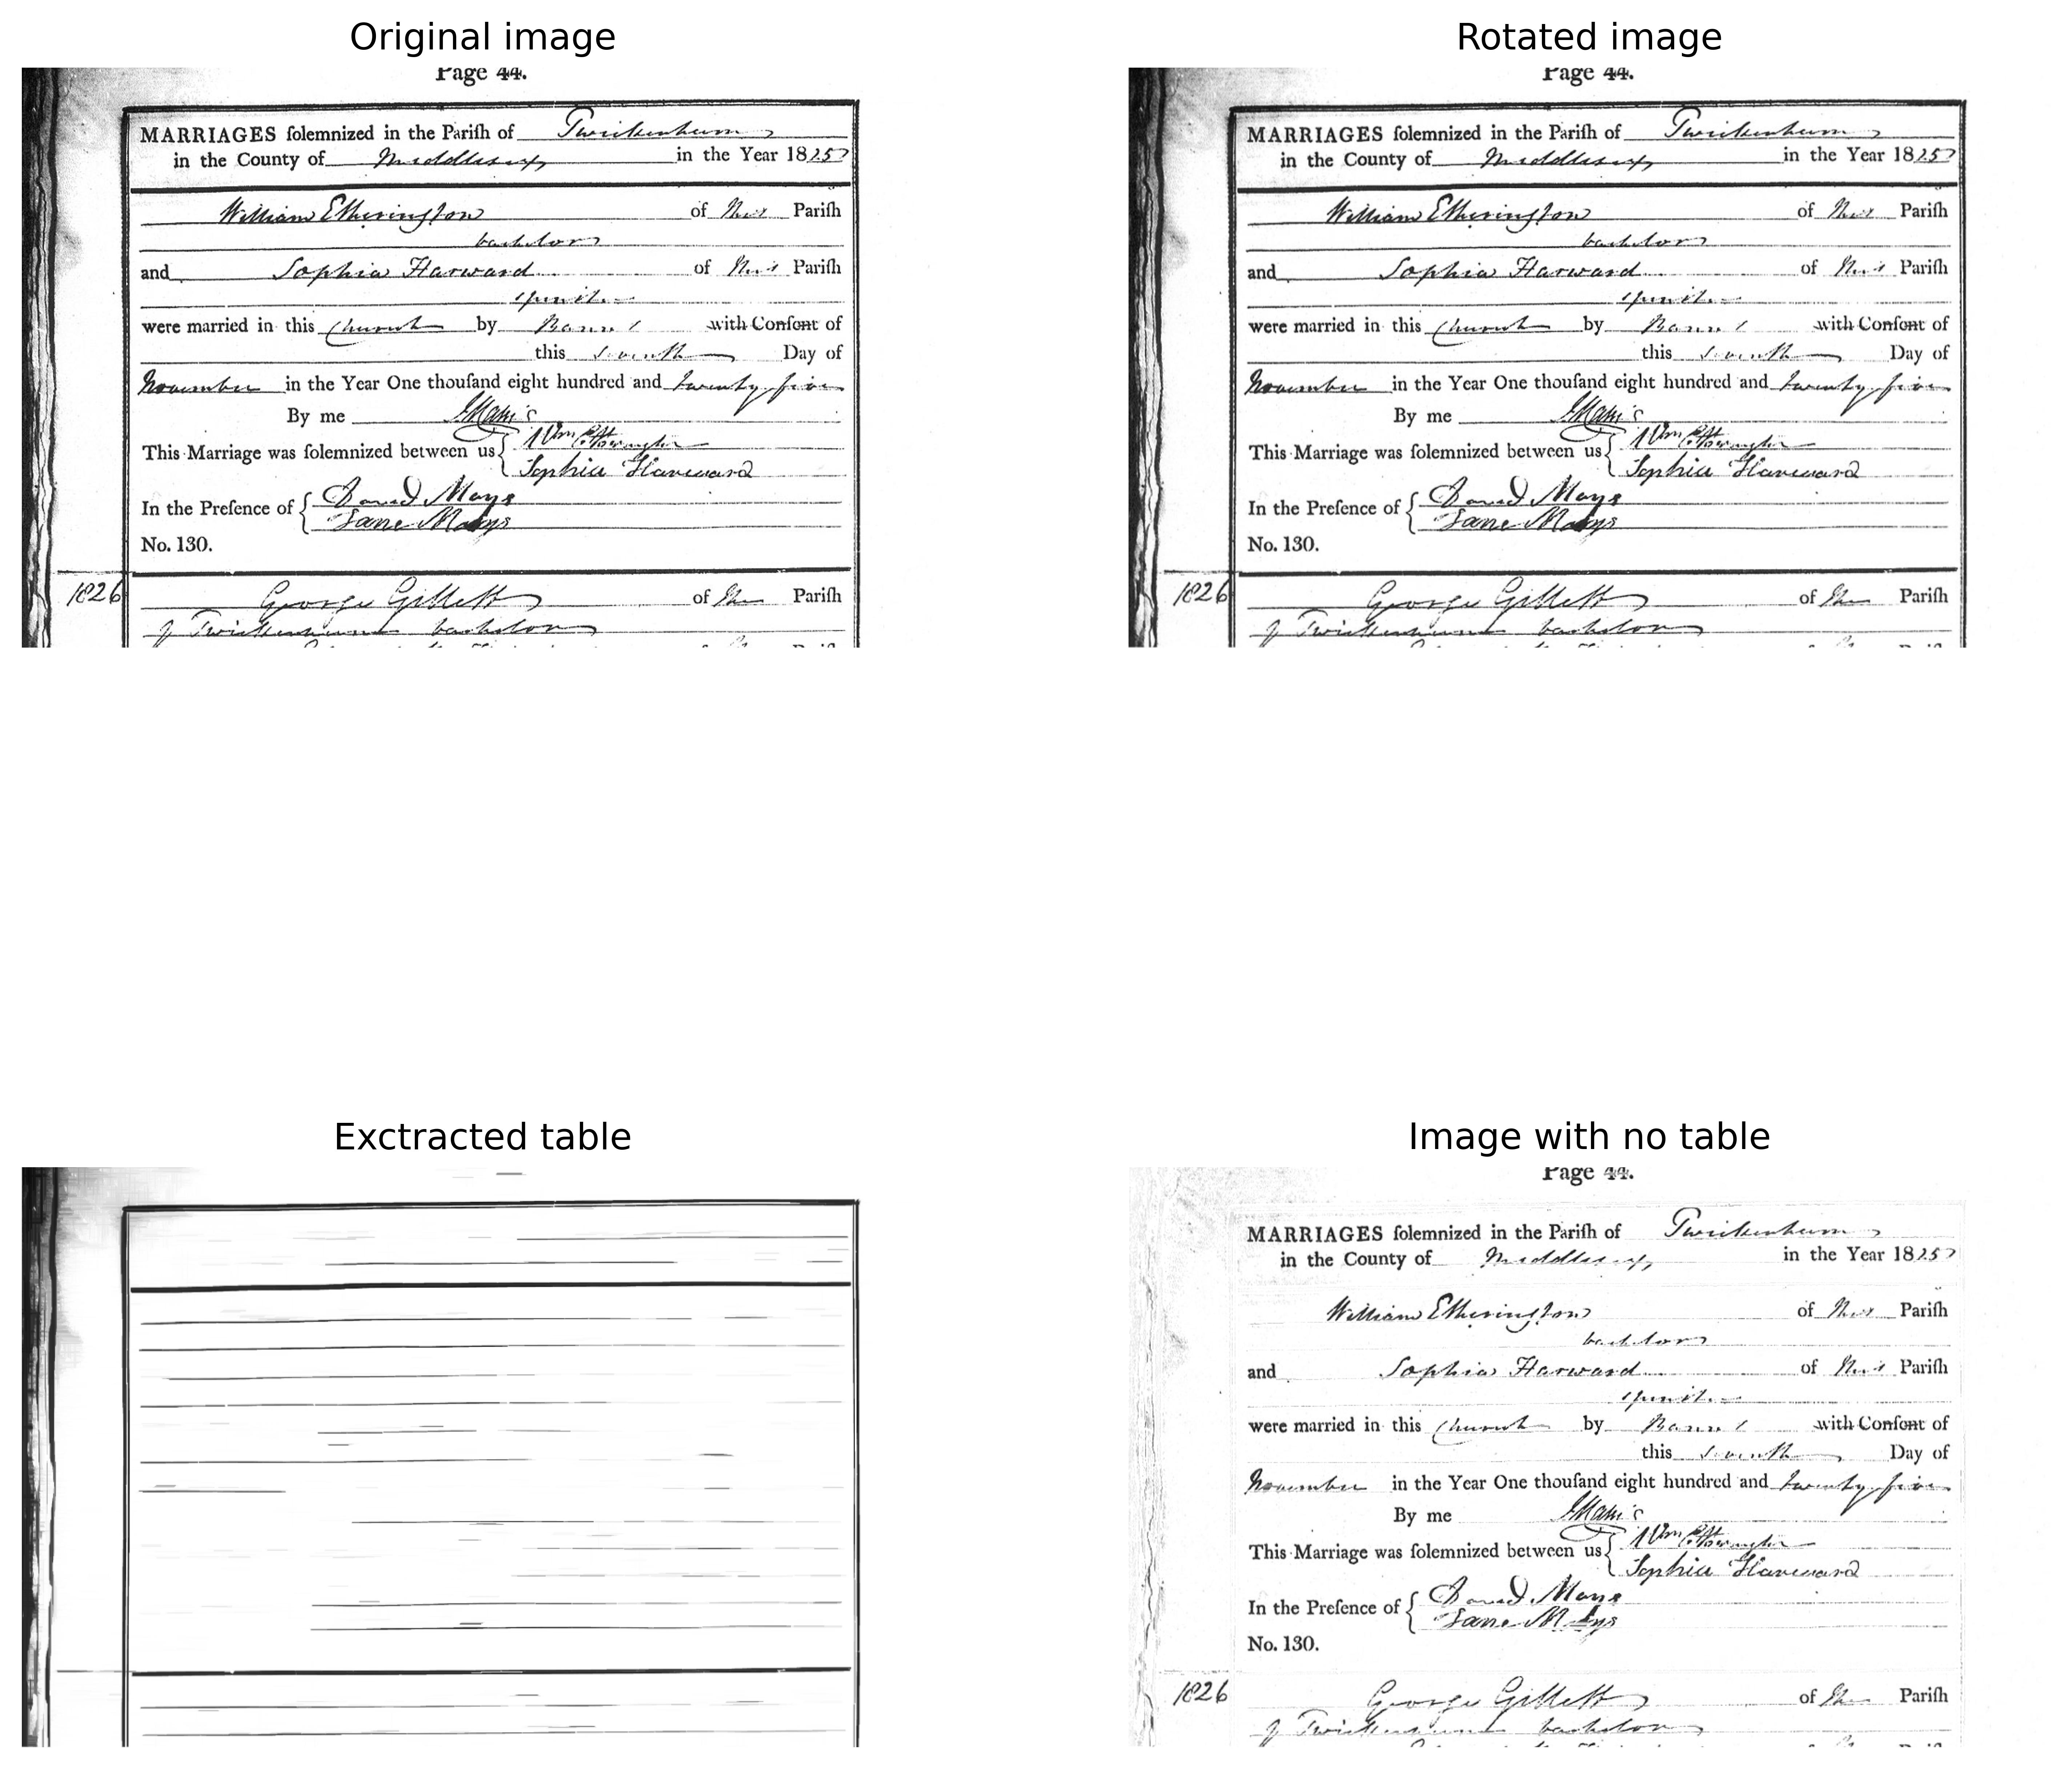 Original image
Page 44.
MARRIAGES ſolemnized in the Pariſh of Twickenham
in the County of Middlesex in the Year 1825
William Etherington of this Pariſh
bachelor
and Sophia Harward of this Pariſh
spinster
were married in this Church by Banns with Conſent of
this seventh Day of
November in the Year One thouſand eight hundred and twenty five
By me
This Marriage was ſolemnized between us { Wm Etherington
Sophia Harward
In the Preſence of { David Mays
Jane Mays
No. 130.
1826 George Gillett of the Pariſh
of Twickenham bachelor
Rotated image
Page 44.
MARRIAGES ſolemnized in the Pariſh of Twickenham
in the County of Middlesex in the Year 1825
William Etherington of this Pariſh
bachelor
and Sophia Harward of this Pariſh
spinster
were married in this Church by Banns with Conſent of
this seventh Day of
November in the Year One thouſand eight hundred and twenty five
By me
This Marriage was ſolemnized between us { Wm Etherington
Sophia Harward
In the Preſence of { David Mays
Jane Mays
No. 130.
1826 George Gillett of the Pariſh
of Twickenham bachelor
Exctracted table
Image with no table
Page 44.
MARRIAGES ſolemnized in the Pariſh of Twickenham
in the County of Middlesex in the Year 1825
William Etherington of this Pariſh
bachelor
and Sophia Harward of this Pariſh
spinster
were married in this Church by Banns with Conſent of
this seventh Day of
November in the Year One thouſand eight hundred and twenty five
By me
This Marriage was ſolemnized between us { Wm Etherington
Sophia Harward
In the Preſence of { David Mays
Jane Mays
No. 130.
1826 George Gillett of the Pariſh
of Twickenham bachelor